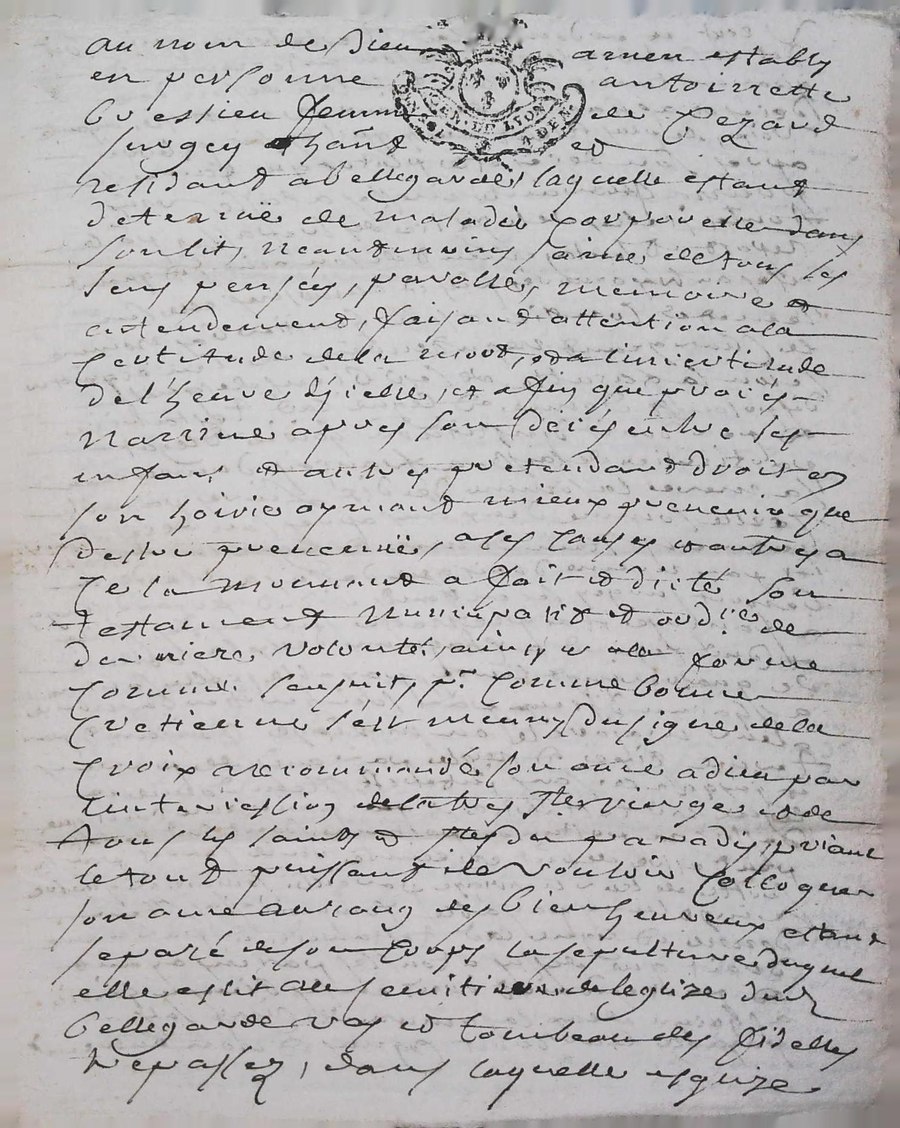 au nom de Dieu amen establÿ
en personne antoinette
Bressieu femme de Cezard
surgey
residant a bellegarde laquelle estant
detenuë de maladie corporelle dans
son lit, neantmoins saine de tous ses
sens pensées, parolle, memoire et
entendement, faisant attention a la
certitude de la mort, et a l'incertitude
de l'heure d'jcelle, et afin que procés
n'arrive apres son décés entre ses
enfans, et autres pretendant droit en
son hoirie aymant mieux prevenir que
destre prevenuë, a ses causes et autres a
ce la mouvant a fait et dicté son
testament nuncupatif et ord.re de
derniere volonté, ainsy et a la forme
comme sensuit, p.r comme bonne
cretienne s'est munÿ du signe de la
croix recommandé son ame a dieu par
lintercession de la tres ste vierge et de
tous les saints et stes du paradis, priant
le tout puissant de vouloir colloquer
son ame au rang des bien heureux estant
separé de son corps la sepulture duquel
elle eslit au semitiere de leglize dud
bellegarde vas et tombeau des fidelles
trepassez, dans laquelle esglize